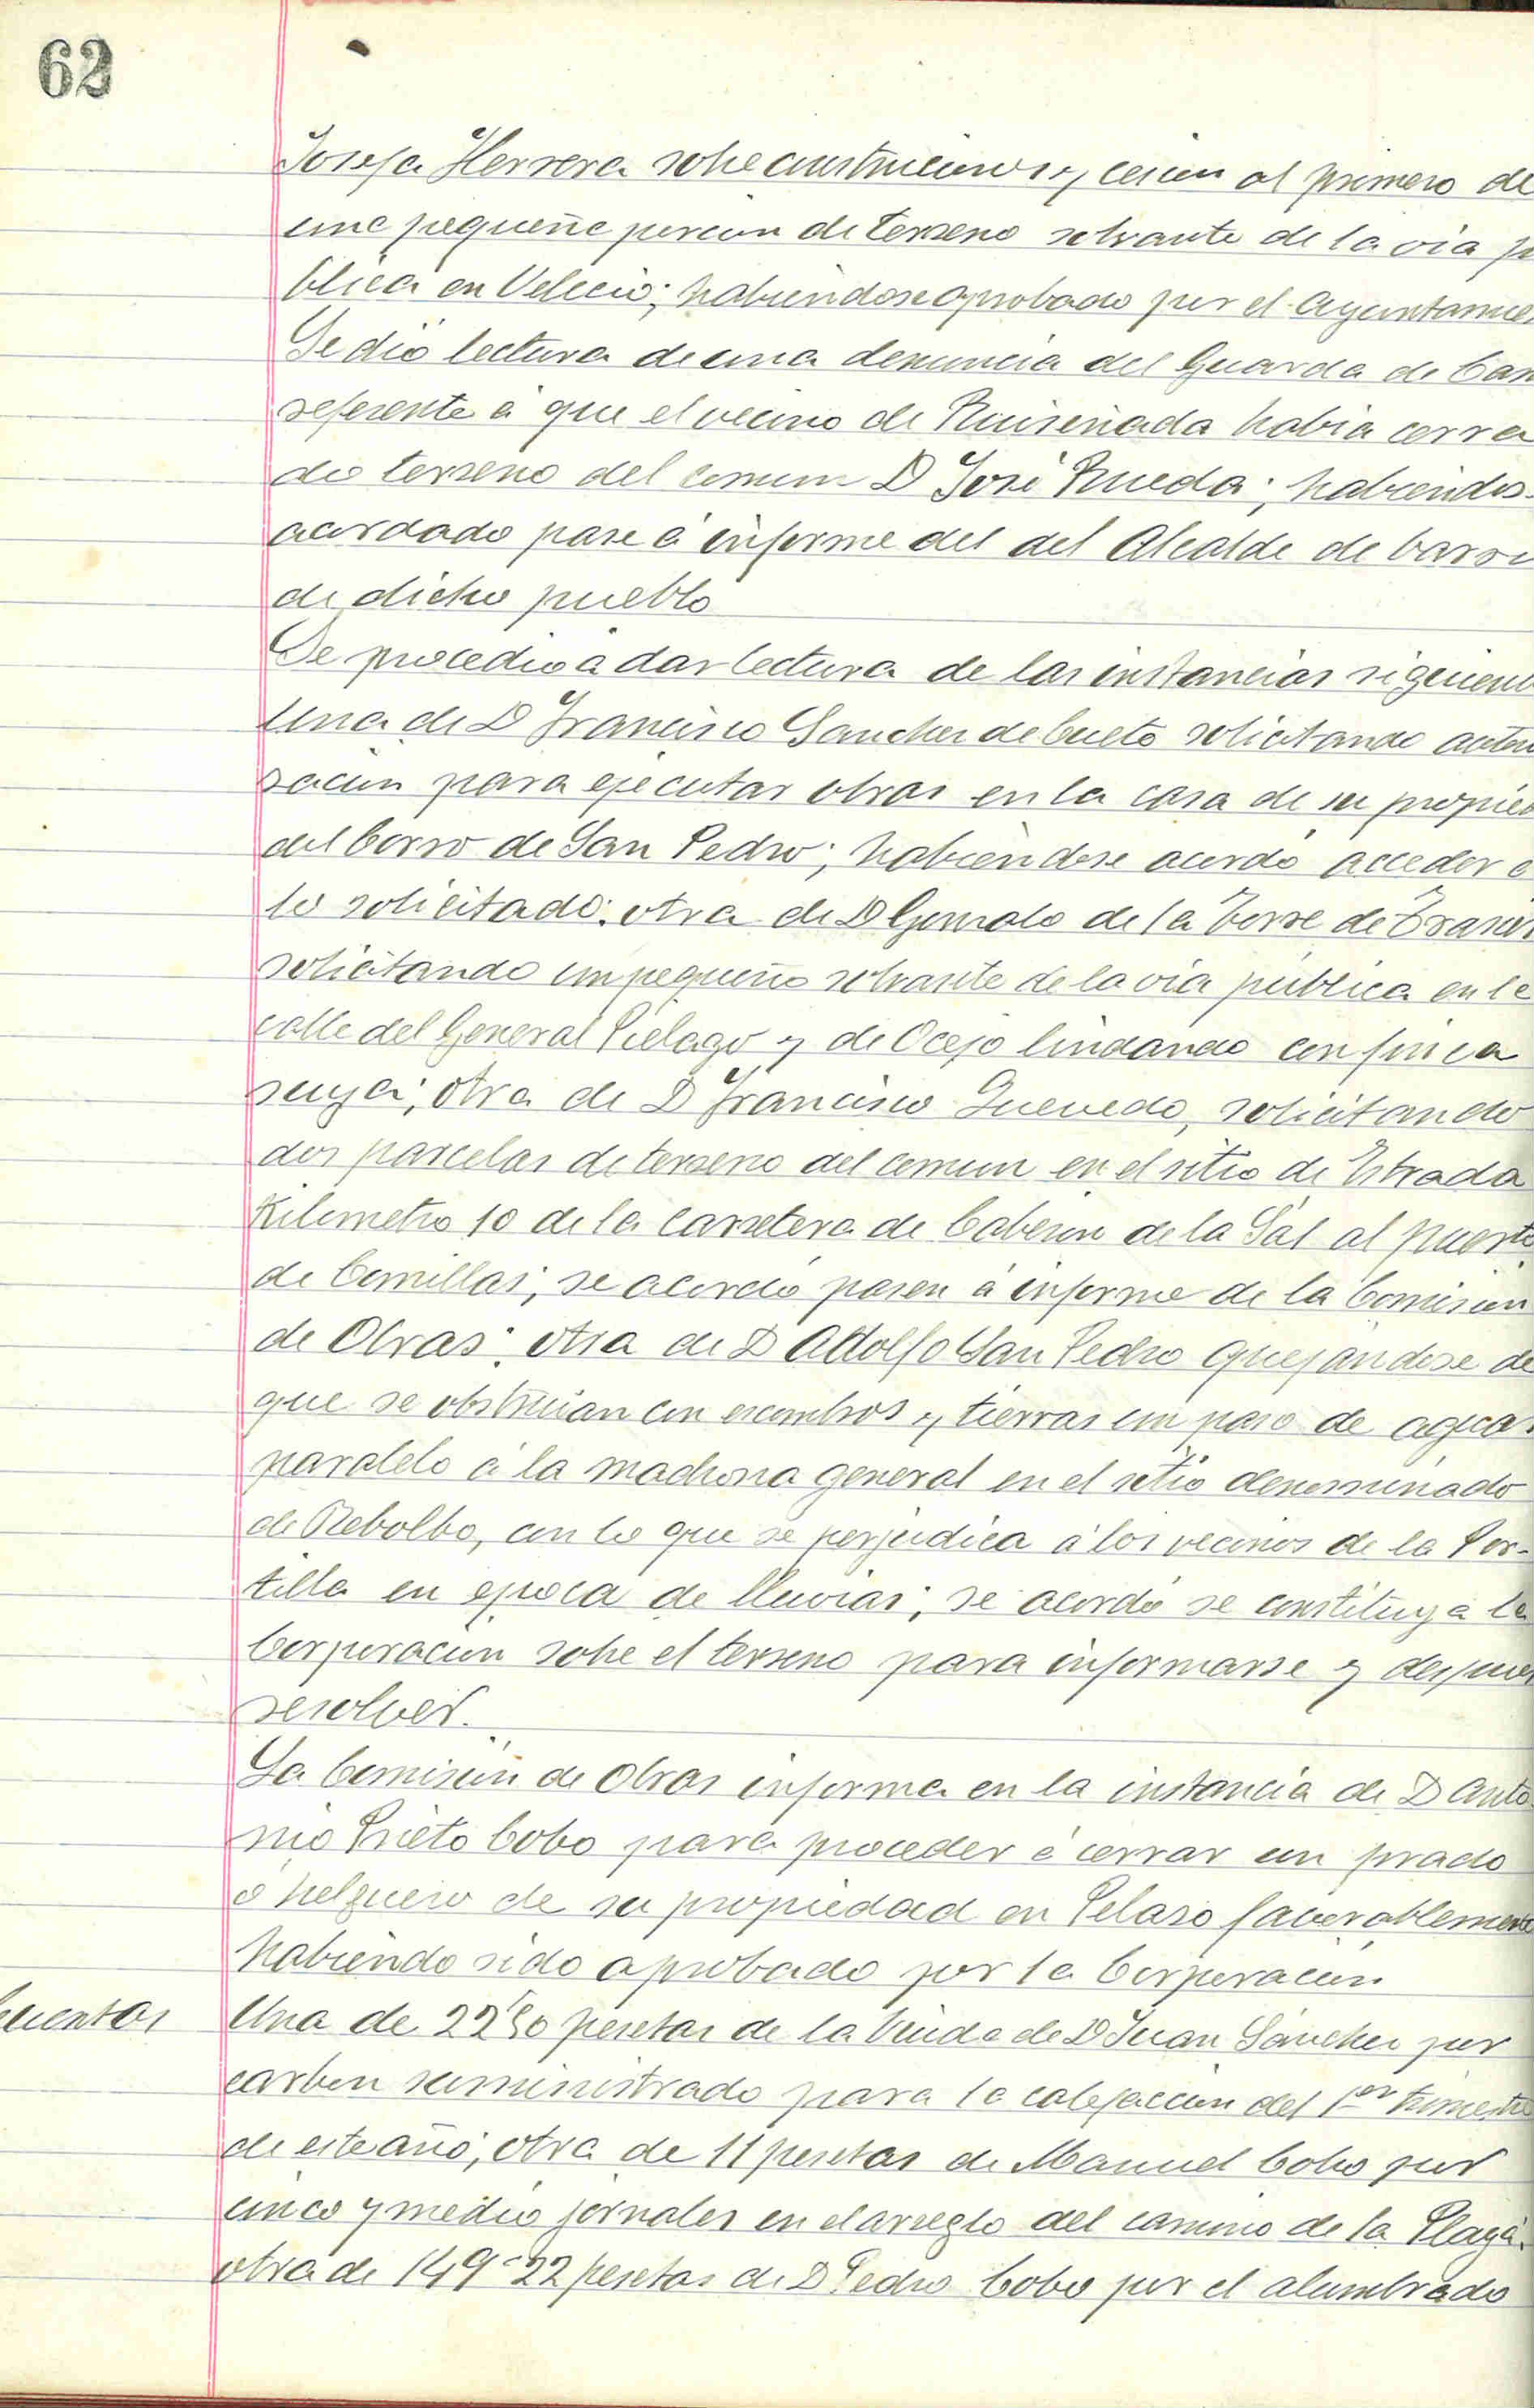 62
Josefa Herrera sobre construcciones y cesion al primero de
una pequeña porcion de terreno sobrante de la via pu
blica en Velecio; habiendose aprobado por el Ayuntamien
Se dió lectura de una denuncia del Guarda de Cam
referente á que el vecino de Ruiseñada habia cerra
do terreno del comun D José Rueda; habiendos
acordado pase á informe del del Alcalde de barri
de dicho pueblo
Se procedio a dar lectura de las instancias siguient
Una de D Francisco Sanchez de Cueto solicitando autori
zacion para ejecutar obras en la casa de su propied
del Corro de San Pedro; habiendose acordó acceder a
lo solicitado: otra de D Gonzalo de la Torre de Trasier
solicitando un pequeño sobrante de la via pública en la
calle del General Piélago y de Ocejo lindando con finca
suya; otra de D Francisco Quevedo, solicitando
dos parcelas de terreno del comun en el sitio de Estrada
Kilometro 10 de la carretera de Cabezon de la Sal al puerto
de Comillas; se acordó pasen á informe de la Comision
de Obras: otra de D Adolfo San Pedro quejandose de
que se obstruian con escombros y tierras un paso de aguas
paralelo á la madrona general en el sitio denominado
de Rebolbo, con lo que se perjudica á los vecinos de la Por-
tilla en epoca de lluvias; se acordó se constituya la
Corporacion sobre el terreno para informarse y despues
resolver.
La Comisión de Obras informa en la instancia de D Anto
nio Prieto Cobo para proceder á cerrar un prado
ó helguero de su propiedad en Pelaso favorablemente
habiendo sido aprobado por la Corporacion
Cuentas Una de 22'50 pesetas de la Viuda de D Juan Sánchez por
carbon suministrado para la calefaccion del 1er trimestre
de este año; otra de 11 pesetas de Manuel Cobo por
cinco y medio jornales en el arreglo del camino de la Playa.
otra de 149'22 pesetas de D Pedro Cobo por el alumbrado